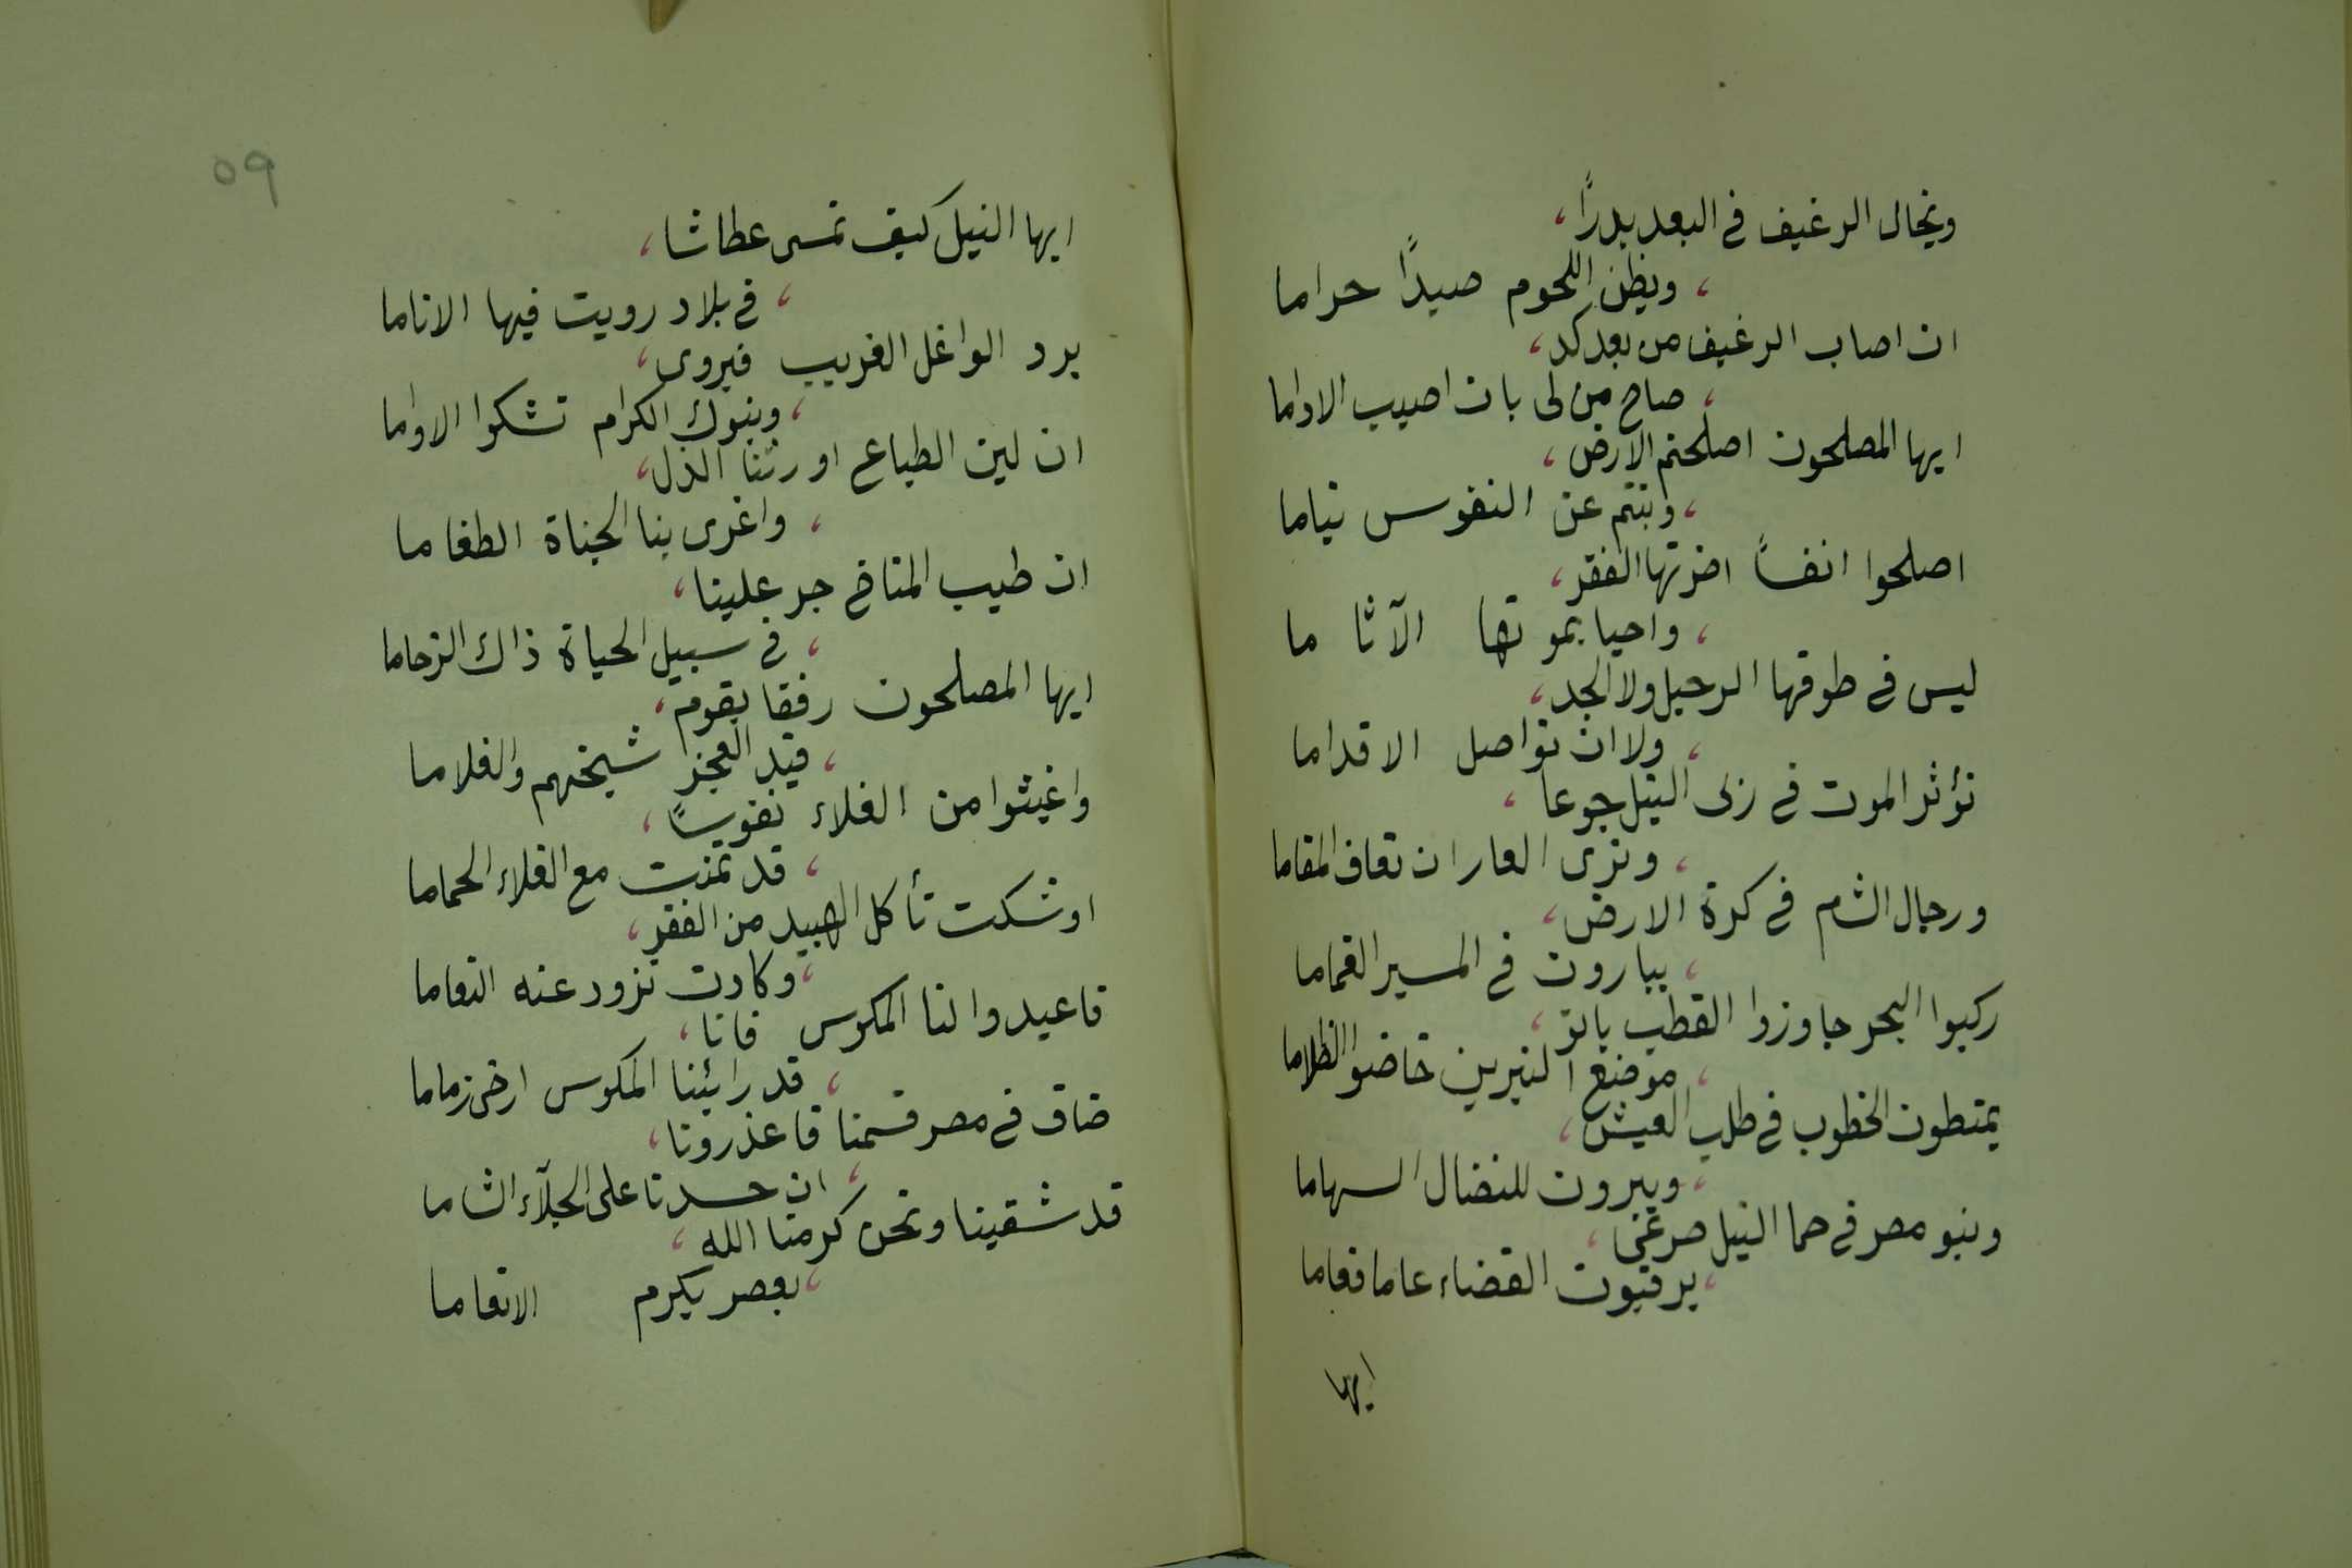 ويخال الرغيف في البعد بدرًا،
، ويظن اللحوم صيدًا حراما
ان اصاب الرغيف من بعد كد،
، صاح من لى بان اصيب الاداما
ايها المصلحون اصلحتم الارض،
، وبتم عن النفوس نياما
اصلحوا انفسًا اضرتها الفقر،
، واحيا بموتها الآثا ما
ليس في طوقها الرحيل ولا الجد،
، ولا ان تواصل الاقداما
تؤثر الموت في ربى النيل جوعا،
، وترى العار ان تعاف المقاما
ورجال الشام في كرة الارض،
، يبارون في المسير الغماما
ركبوا البحر جاوزوا القطب باتو،
، موضع النيرين خاضوا الظلاما
يمتطون الخطوب في طلب العيش،
، ويبرون للنضال السهاما
وبنو مصر في حما النيل صرعى،
، يرقبون القضاء عاما فعاما
ايها
٥٩
ايها النيل كيف تمسى عطاشا،
، في بلاد رويت فيها الاناما
يرد الواغل الغريب فيروى،
، وبنوك الكرام تشكوا الاواما
ان لين الطباع اورثنا الذل،
، واغرى بنا الجناة الطغاما
ان طيب المناخ جر علينا،
، في سبيل الحياة ذاك الزحاما
ايها المصلحون رفقا بقوم،
، قيد العجز شيخهم والغلاما
واغيثوا من الغلاء نفوسًا،
، قد تمنت مع الغلاء الحماما
اوشكت تأكل الهبيد من الفقر،
، وكادت تزود عنه النعاما
فاعيدوا لنا المكوس فانا،
، قد رائينا المكوس ارخى زماما
ضاق في مصر قسمنا فاعذرونا،
، ان حسدنا على الجلآء الشاما
قد شقينا ونحن كرمنا الله،
، بعصر يكرم الانعاما